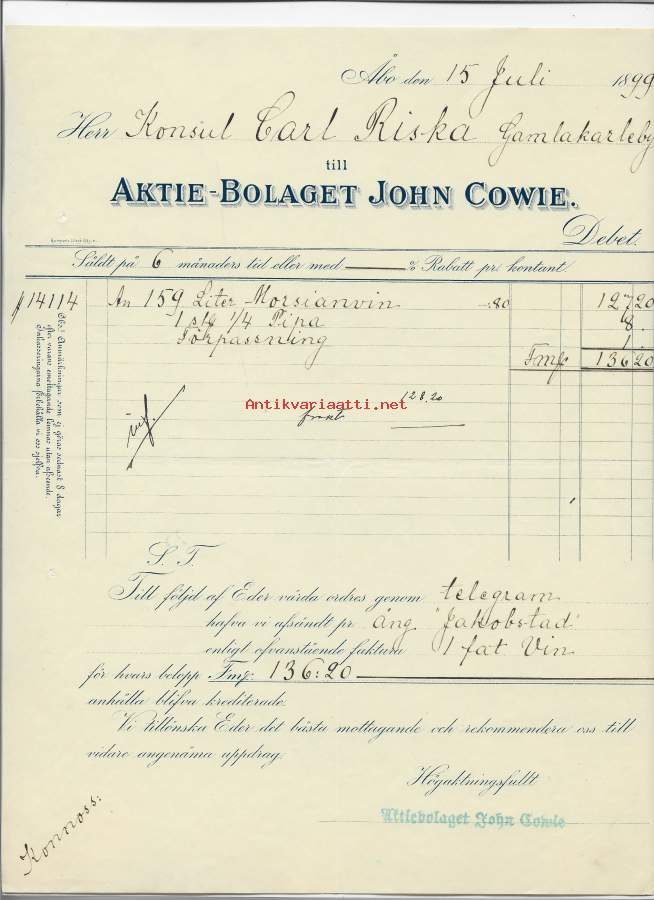 Åbo den 15 Juli 1899
Herr Konsul Carl Riska Gamlakarleby
till
AKTIE-BOLAGET JOHN COWIE.
Debet.
Såldt på 6 månaders tid eller med — % Rabatt pr kontant.
14114 An 159 Liter Morsianvin -:80 127 20
1 stk 1/4 Pipa 8 .
Förpassning 1 .
Fmk 136 20
Antikvariaatti.net
128.20
Obs! Anmärkningar som ej göras sednast 8 dagar
efter varans emottagande lämnas utan afseende.
Inkasseringarna förbehålla vi oss sjelfva.
S. T.
Till följd af Eder värda ordres genom telegram
hafva vi afsändt pr ång. "Jakobstad"
enligt ofvanstående faktura 1 fat Vin
för hvars belopp Fmk: 136:20
anhålla blifva krediterade.
Vi tillönska Eder det bästa mottagande och rekommendera oss till
vidare angenäma uppdrag.
Högaktningsfullt
Aktiebolaget John Cowie
Konnoss: